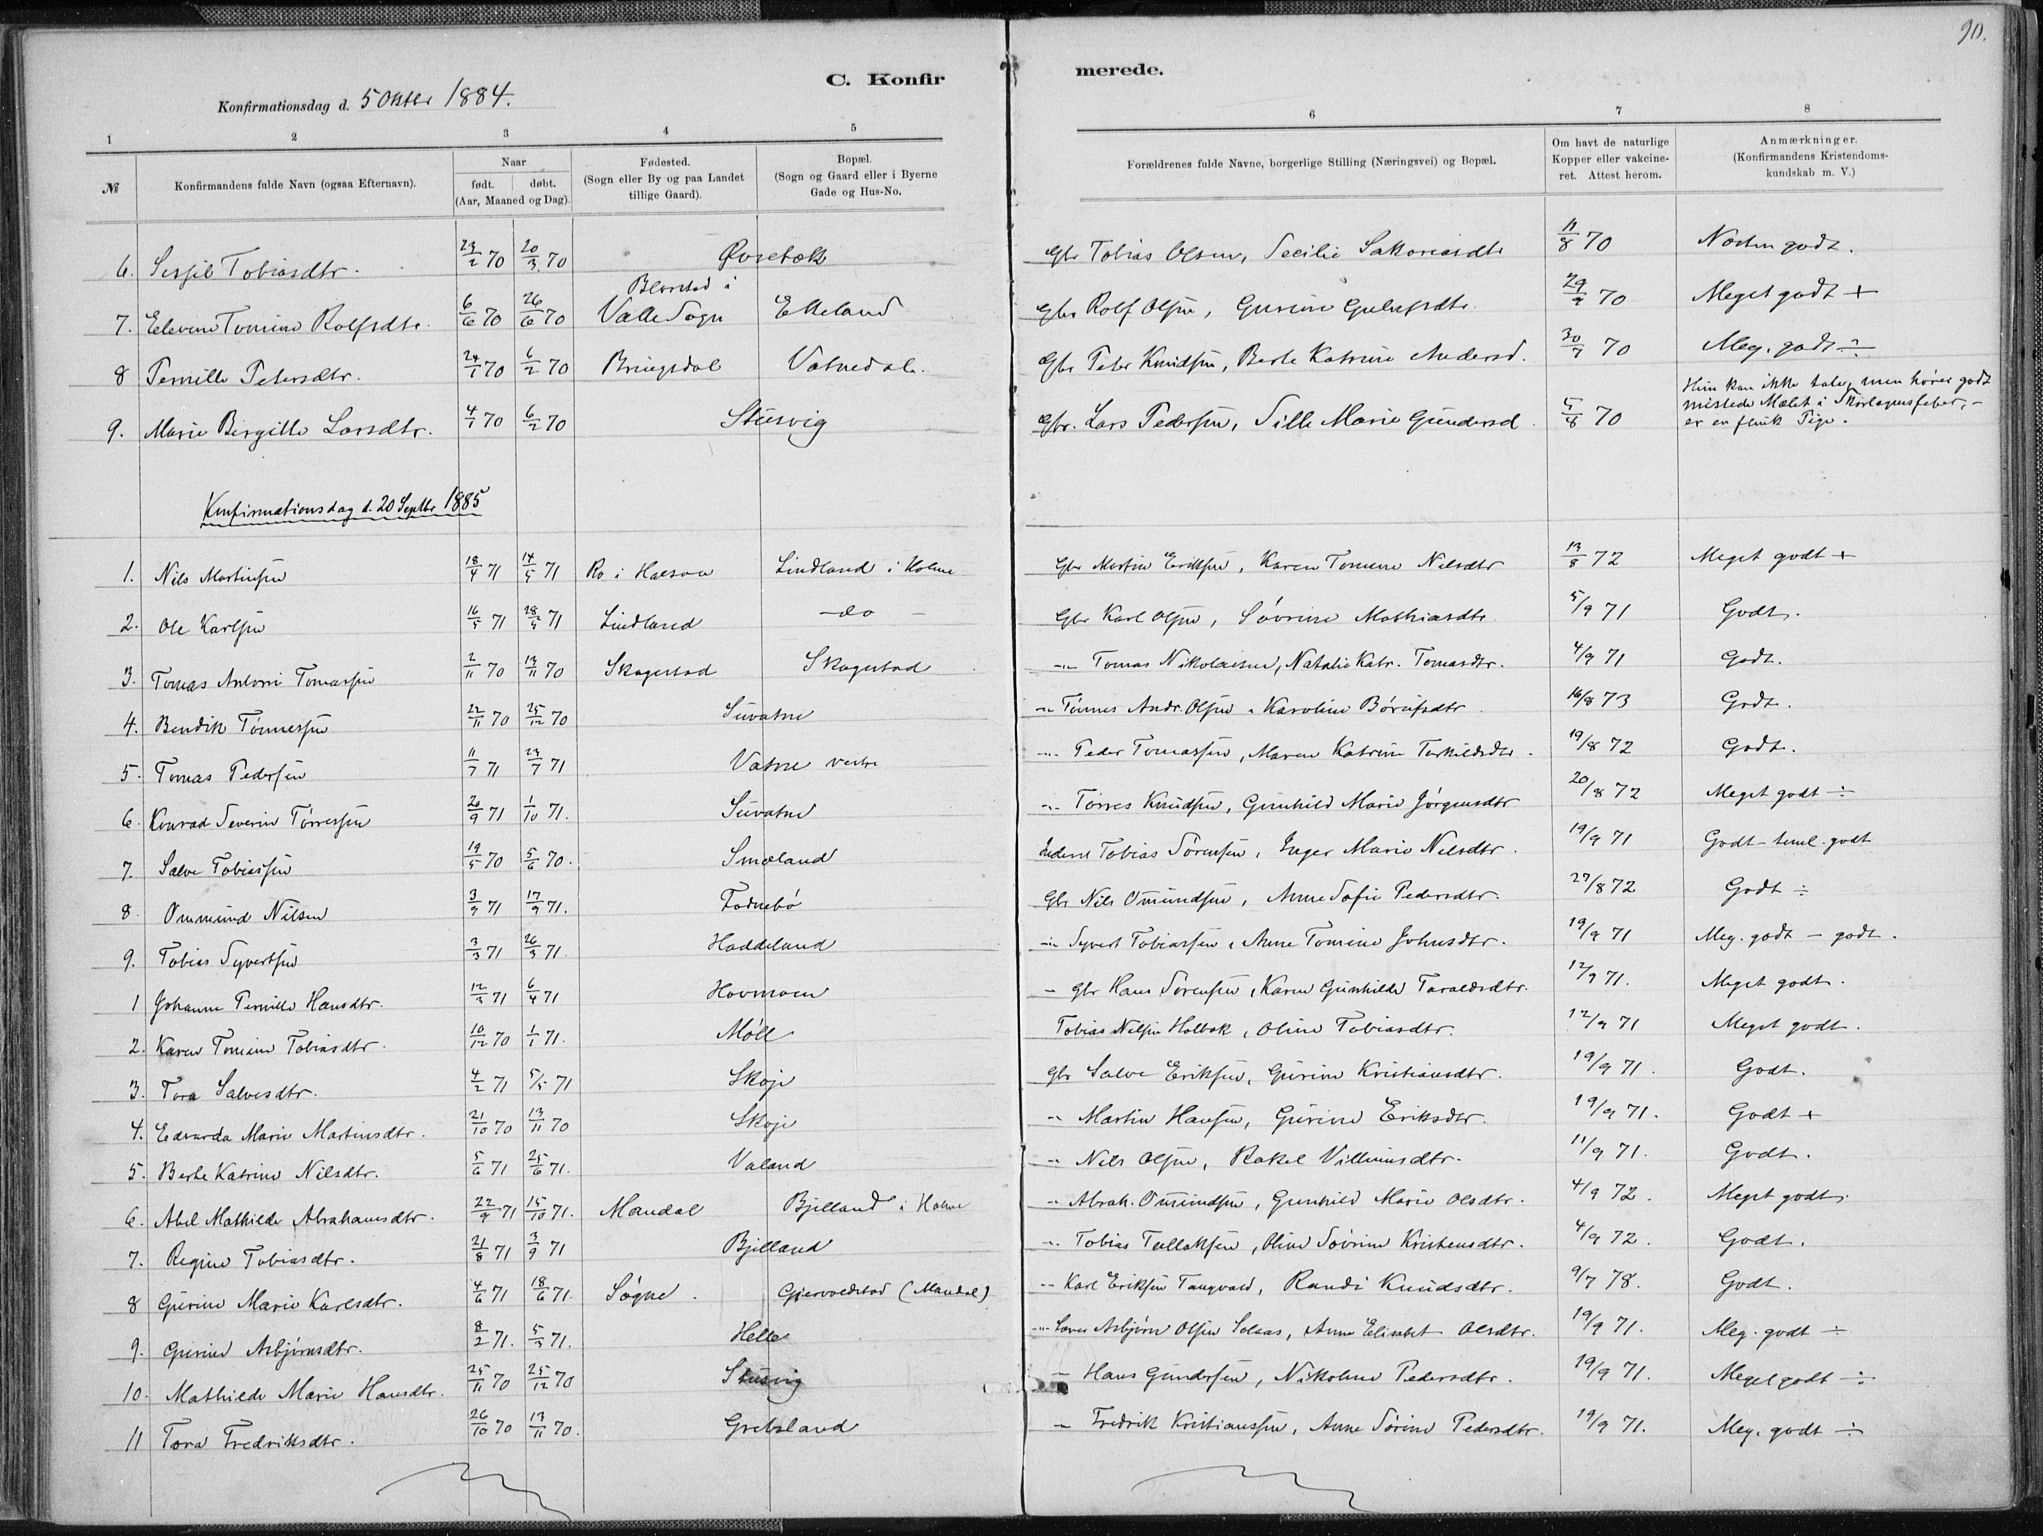 90.
C. Konfirmerede.
Konfirmationsdag d. 5 Oktbr 1884.
1 2 3 4 5 6 7 8
№ Konfirmandens fulde Navn (ogsaa Efternavn). Naar født. døbt. (Aar, Maaned og Dag). Fødested. (Sogn eller By og paa Landet tillige Gaard). Bopæl. (Sogn og Gaard eller i Byerne Gade og Hus-No. Forældrenes fulde Navne, borgerlige Stilling (Næringsvei) og Bopæl. Om havt de naturlige Kopper eller vakcineret. Attest herom. Anmærkninger. (Konfirmandens Kristendomskundskab m. V.)
6. Sesjil Tobiasdtr. 23/2 70 20/3 70 Øvrebøk Gbr Tobias Olsen, Secilie Sakariasdtr 11/8 70 Næsten godt.
7. Elevine Tomine Rolfsdtr. 6/6 70 26/6 70 Blørstad i Valle Sogn Eikeland Gbr Rolf Olsen, Gurine Gulufsdtr. 29/9 70 Meget godt +
8 Pernille Petersdtr. 24/1 70 6/2 70 Bringsdal Vatnedal. Gbr Peter Knudsen, Berte Katrine Andersd. 30/7 70 Meg. godt ÷
9. Marie Bergitte Larsdtr. 4/1 70 6/2 70 Stusvig Gbr. Lars Pedersen, Sille Marie Gundersd 5/8 70 Hun kan ikke tale, men hører godt mistede Mælet i Skarlagensfeber, - er en flink Pige.
Konfirmationsdag d. 20 Septbr 1885
1. Nils Martinsen 18/4 71 14/5 71 Ro i Halsaa Lindland i Holme Gbr Martin Eriksen, Karen Tomine Nilsdtr 13/8 72 Meget godt +
2. Ole Karlsen 16/5 71 28/5 71 Lindland - do - Gbr Karl Olsen, Søvrine Mathiasdtr 5/9 71 Godt.
3. Tomas Antoni Tomassen 2/11 70 13/11 70 Skagestad Skagestad -"- Tomas Nikolaisen, Natalie Katr. Tomasdtr. 4/9 71 Godt.
4. Bendik Tønnessen 22/11 70 25/12 70 Suvatne -"- Tønnes Andr. Olsen, Karoline Børufsdtr. 16/8 73 Godt.
5. Tomas Pedersen 11/7 71 23/7 71 Vatne vestre -"- Peder Tomassen, Maren Katrine Terkildsdtr. 19/8 72 Godt.
6. Konrad Severin Tørressen 20/9 71 1/10 71. Suvatne -"- Tørres Knudsen, Gunhild Marie Jørgensdtr 20/8 72 Meget godt ÷
7. Salve Tobiassen 19/5 70 5/6 70. Smæland Inderst Tobias Sørensen, Inger Marie Nilsdtr. 19/9 71 Godt - teml. godt
8. Ommund Nilsen 3/9 71 17/9 71. Fodnebø Gbr Nils Omundsen, Anne Sofie Pedersdtr. 27/8 72 Godt ÷
9. Tobias Syvertsen 3/3 71 26/3 71. Haddeland -"- Syvert Tobiassen, Anne Tomine Johnsdtr. 19/9 71 Meg. godt - godt.
1 Johanne Pernille Hansdtr. 12/3 71 6/4 71 Hovmoen - Gbr Hans Sørensen, Karen Gunhilde Taraldsdtr. 12/9 71. Meget godt.
2. Karen Tomine Tobiasdtr. 10/12 70 1/1 71. Møll Tobias Nilsen Holbæk, Oline Tobiasdtr. 12/9 71 Meget godt.
3. Tora Salvesdtr. 4/2 71 5/5 71 Skoje Gbr Salve Eriksen, Gurine Kristiansdtr. 19/9 71. Godt.
4. Edvarda Marie Martinsdtr. 21/10 70 13/11 70 Skoje -"- Martin Hansen, Gurine Eriksdtr. 19/9 71. Godt +
5. Berte Katrine Nilsdtr. 5/6 71 25/6 71. Valand -"- Nils Olsen, Rakel Villumsdtr. 11/9 71. Godt.
6. Abel Mathilde Abrahamsdtr. 22/9 71 15/10 71. Mandal Bjelland i Holme -"- Abrah. Omundsen, Gunhild Marie Olsdtr. 4/9 72. Meget godt.
7. Regine Tobiasdtr. 21/8 71 3/9 71 Bjelland -"- Tobias Tellaksen, Oline Søvrine Kristensdtr. 4/9 72. Godt.
8 Gurine Marie Karlsdtr. 4/6 71 18/6 71. Søgne. Gjervoldstad (Mandal) -"- Karl Eriksen Tangvald, Randi Knudsdtr. 9/7 78. Godt.
9. Gurine Asbjørnsdtr. 8/2 71. 5/3 71. Helle -"- Asbjørn Olsen, Anne Elisabet Olsdtr. 19/9 71. Meg. godt ÷
10. Mathilde Marie Hansdtr. 25/11 70 25/12 70 Stusvig - Hans Gundersen, Nikoline Pedersdtr. 19/9 71. Meget godt ÷
11 Tora Fredriksdtr. 26/10 70 13/11 70. Grebsland - Fredrik Kristianssen, Anne Sørine Pedersdtr. 19/9 71. Meg. godt ÷